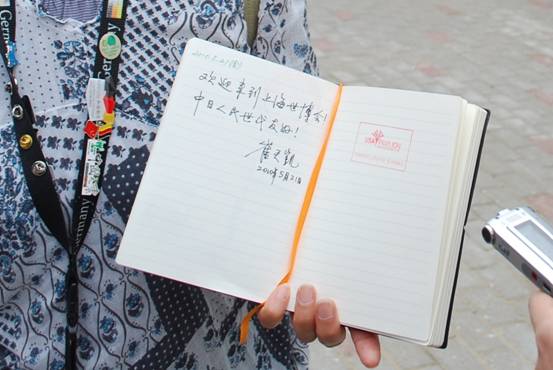 Germany
Germany
欢迎来到上海世博会!
中日人民世代友好!
崔天凯
2010年5月21日
USA PAVILION